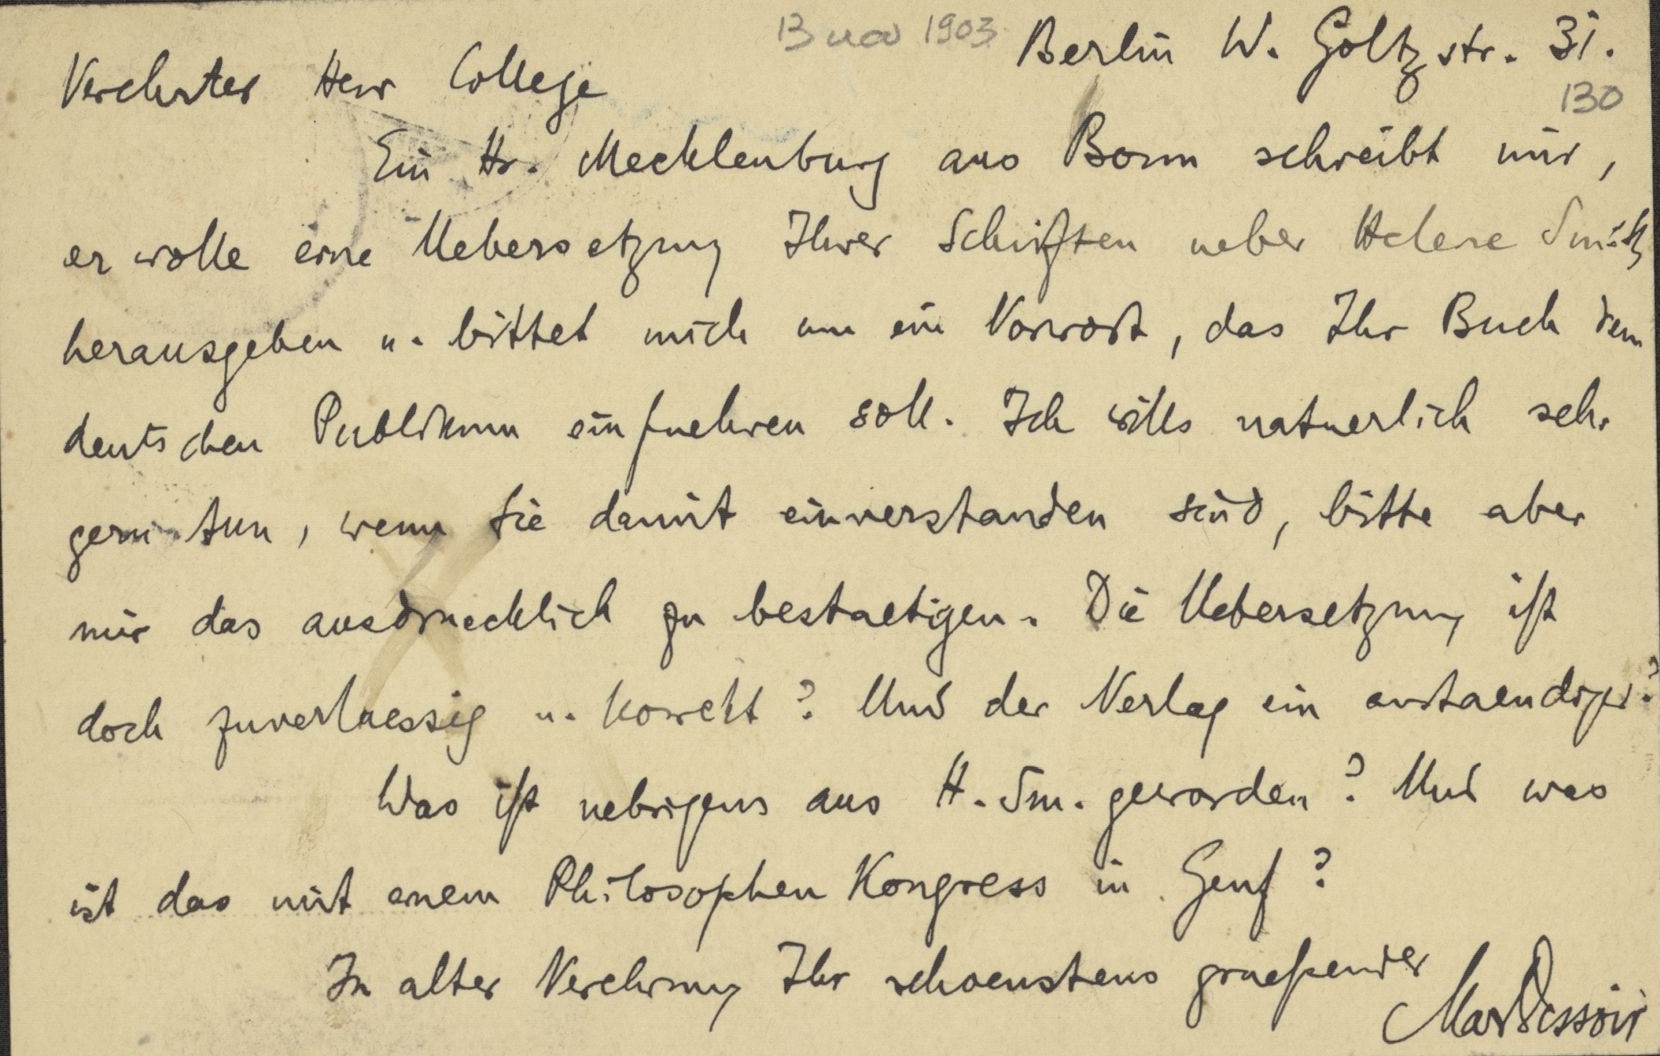 13 nov 1903 Berlin W. Goltzstr. 31.
130
Verehrter Herr College
Ein Hr. Mecklenburg aus Bonn schreibt mir,
er wolle eine Uebersetzung Ihrer Schriften ueber Helene Smith
herausgeben u. bittet mich um ein Vorwort, das Ihr Buch dem
deutschen Publikum einfuehren soll. Ich wills natuerlich sehr
gern tun, wenn Sie damit einverstanden sind, bitte aber
mir das ausdruecklich zu bestaetigen. Die Uebersetzung ist
doch zuverlaessig u. korrekt? Und der Verlag ein anstaendiger?
Was ist uebrigens aus H. Sm. geworden? Und was
ist das mit einem Philosophen Kongress in Genf?
In alter Verehrung Ihr schoenstens grueßender
Max Dessoir